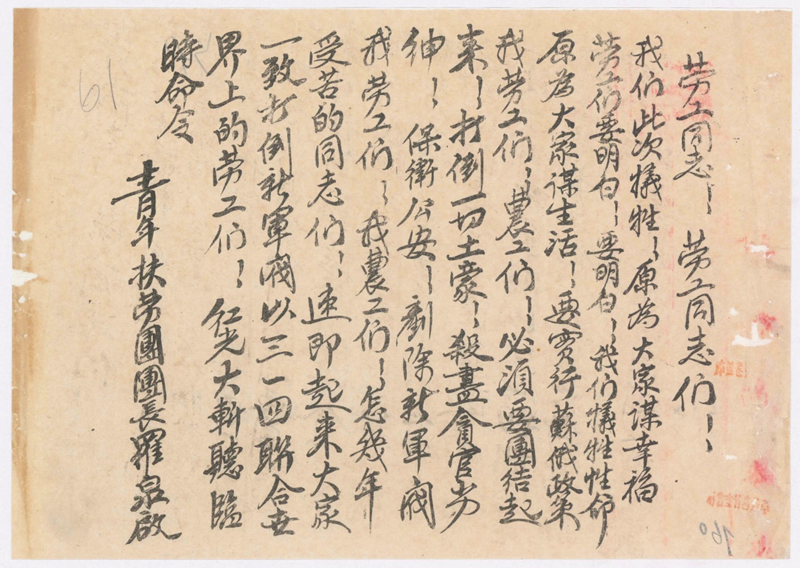 劳工同志! 劳工同志们!!
我们此次犠牲!原为大家谋幸福
劳工们要明白!要明白!我们犠牲性命
原為大家谋生活!要实行蘇俄政策
我劳工们!農工们!必須要團结起
来!打倒一切土豪!殺盡貪官劣
紳!保衛公安!剷除新軍阀
我劳工们!我農工们!怎幾年
受苦的同志们!速即起来大家
一致打倒新軍阀以三一四聯合世
界上的劳工们!红光大斬聽臨
時命令
青年扶劳團團長羅泉啟
61
160